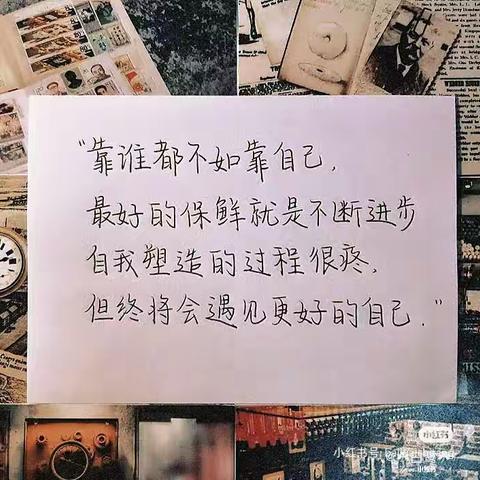 “靠谁都不如靠自己，
最好的保鲜就是不断进步
自我塑造的过程很疼，
但终将会遇见更好的自己．”
小红书
小红书号: